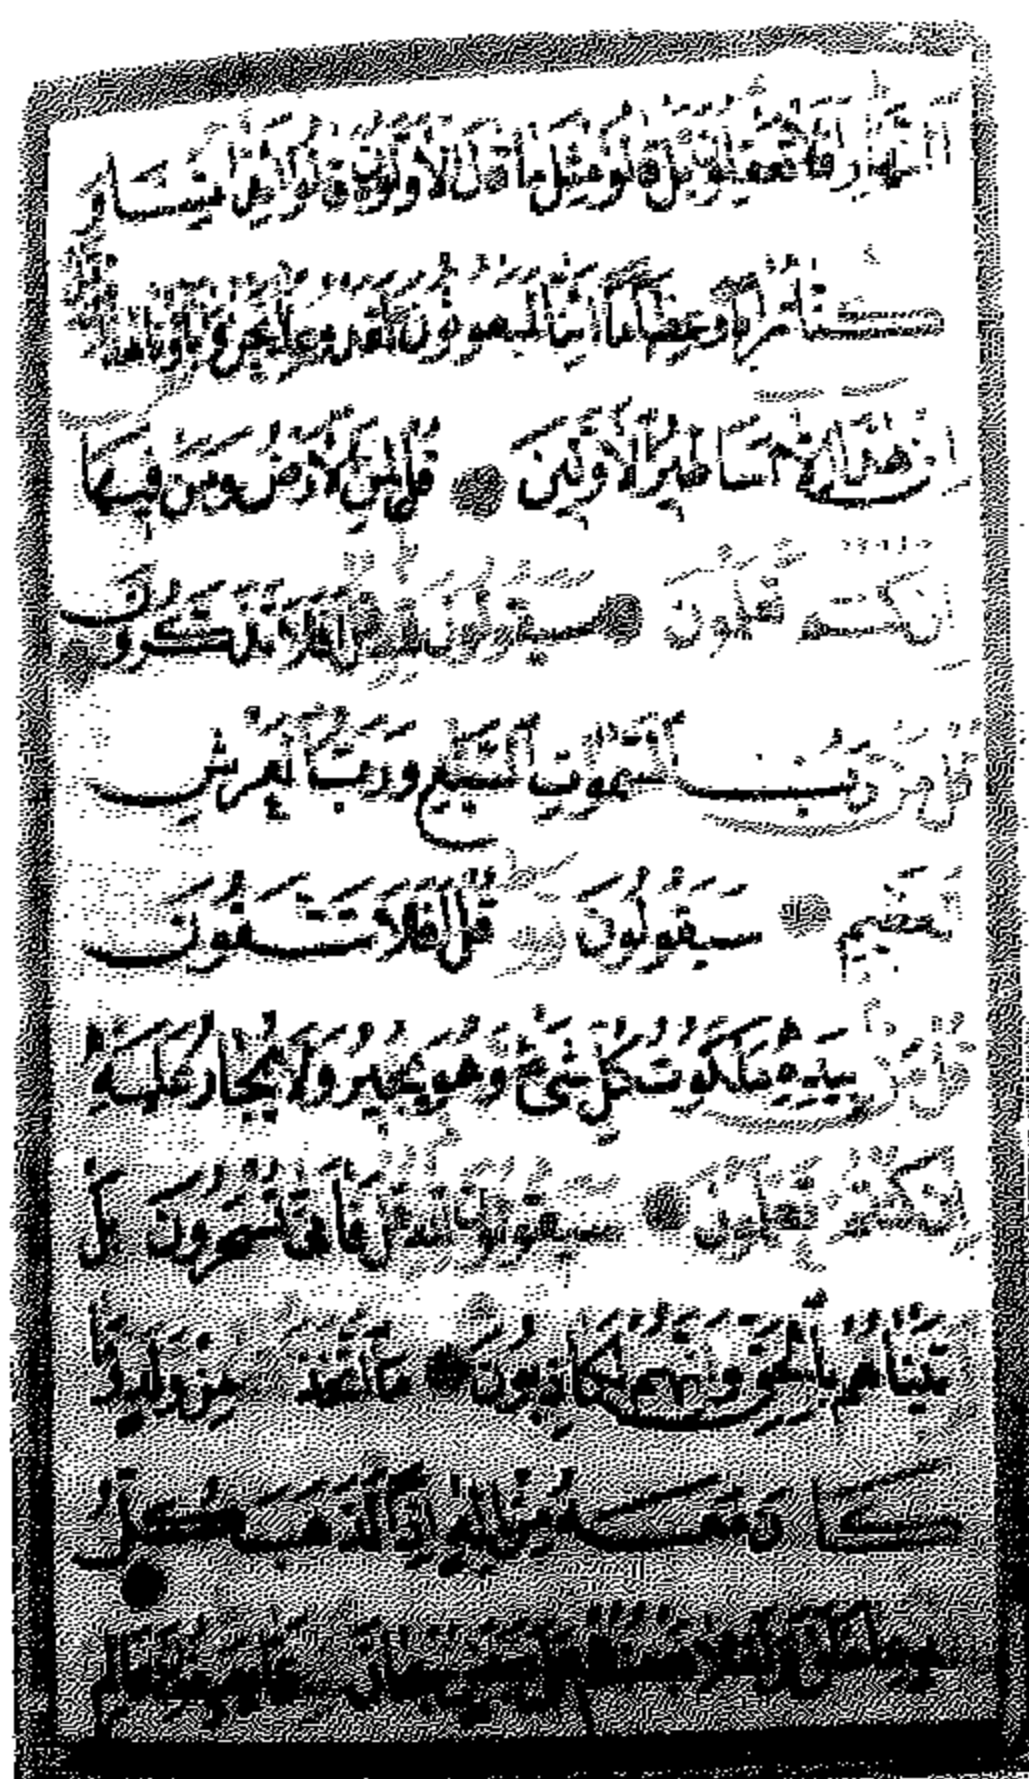 النَّهَارِ أَفَلَا تَعْقِلُونَ بَلْ قَالُوا مِثْلَ مَا قَالَ الْأَوَّلُونَ قَالُوا أَئِذَا مِتْنَا وَ
كُنَّا تُرَابًا وَعِظَامًا أَئِنَّا لَمَبْعُوثُونَ لَقَدْ وُعِدْنَا نَحْنُ وَآبَاؤُنَا هَذَا
إِنْ هَذَا إِلَّا أَسَاطِيرُ الْأَوَّلِينَ قُلْ لِمَنِ الْأَرْضُ وَمَنْ فِيهَا
إِنْ كُنْتُمْ تَعْلَمُونَ سَيَقُولُونَ لِلَّهِ قُلْ أَفَلَا تَذَكَّرُونَ
قُلْ مَنْ رَبُّ السَّمَوَاتِ السَّبْعِ وَرَبُّ الْعَرْشِ
الْعَظِيمِ سَيَقُولُونَ قُلْ أَفَلَا تَتَّقُونَ
قُلْ مَنْ بِيَدِهِ مَلَكُوتُ كُلِّ شَيْءٍ وَهُوَ يُجِيرُ وَلَا يُجَارُ عَلَيْهِ
إِنْ كُنْتُمْ تَعْلَمُونَ سَيَقُولُونَ لِلَّهِ قُلْ فَأَنَّى تُسْحَرُونَ بَلْ
أَتَيْنَاهُمْ بِالْحَقِّ وَإِنَّهُمْ لَكَاذِبُونَ مَا اتَّخَذَ مِنْ وَلَدٍ وَمَا
كَانَ مَعَهُ مِنْ إِلَهٍ إِذًا لَذَهَبَ كُلُّ